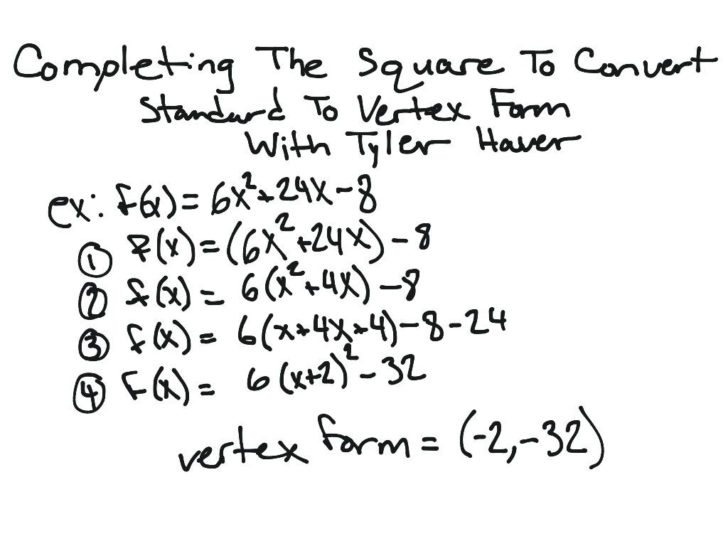 Completing The Square To Convert
Standard To Vertex Form
With Tyler Haver
ex: f(x) = 6x²+24x-8
① f(x) = (6x²+24x) - 8
② f(x) = 6(x²+4x) - 8
③ f(x) = 6(x+4x+4)-8-24
④ f(x) = 6(x+2)² - 32
vertex form = (-2,-32)